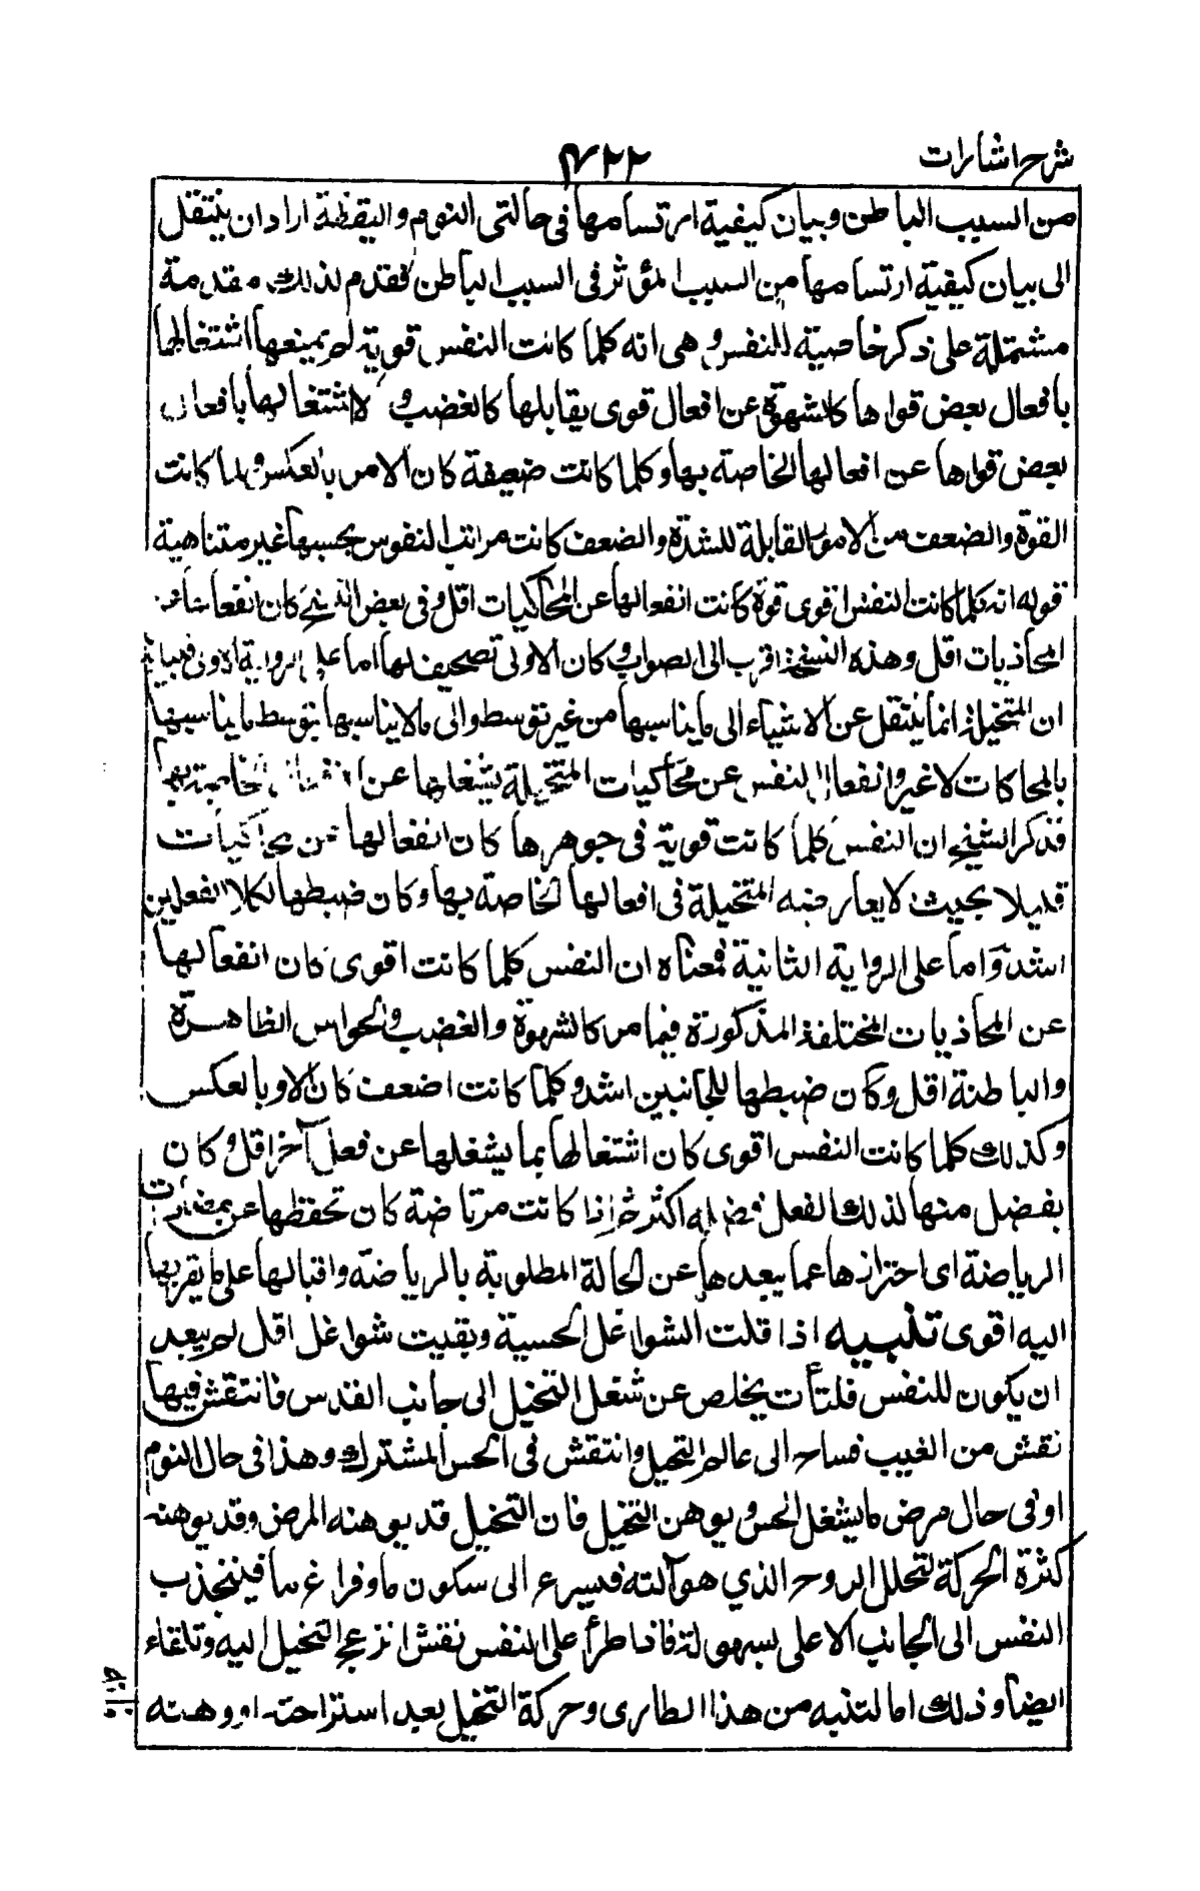 شرح اشارات
٤٢٢
من السبب الباطن وبيان كيفية ارتسامها فى حالتى النوم واليقظة اراد ان ينتقل
الى بيان كيفية ارتسامها من السبب المؤثر فى السبب الباطن فقدم لذلك مقدمة
مشتملة على ذكر خاصية للنفس وهى انه كلما كانت النفس قوية لم يمنعها اشتغالها
بافعال بعض قواها كالشهوة عن افعال قوى يقابلها كالغضب ولا اشتغالها بافعال
بعض قواها عن افعالها الخاصة بها وكلما كانت ضعيفة كان الامر بالعكس ولما كانت
القوة والضعف من الامور القابلة للشدة والضعف كانت مراتب النفوس بحسبها غير متناهية
قوله انه كلما كانت النفس اقوى قوة كانت انفعالها عن المحاكيات اقل وفى بعض النسخ كان انفعالها عن
المحاذيات اقل وهذه النسخة اقرب الى الصواب وكان الاولى تصحيف لها اما على الرواية الاولى فبيانه
ان المتخيلة انما ينتقل عن الاشياء الى ما يناسبها من غير توسط والى ما لا يناسبها بتوسط ما يناسبها
بالمحاكات لا غير وانفعال النفس عن محاكيات المتخيلة يشغلها عن الخاصة بها
فذكر الشيخ ان النفس كلما كانت قوية فى جوهرها كان انفعالها عن محاكيات
قليلا بحيث لا يعارضه المتخيلة فى افعالها الخاصة بها وكان ضبطها لكلا الفعلين
اشد واما على الرواية الثانية فمعناه ان النفس كلما كانت اقوى كان انفعالها
عن المحاذيات المختلفة المذكورة فيما مر كالشهوة والغضب والحواس الظاهرة
والباطنة اقل وكان ضبطها للجانبين اشد وكلما كانت اضعف كان الاو بالعكس
وكذلك كلما كانت النفس اقوى كان اشتغالها بما يشغلها عن فعل آخر اقل وكان
يفضل منها لذلك الفعل فضلة اكثر ثم اذا كانت مرتاضة كان تحفظها عن مضادات
الرياضة اى احترازها عما يبعدها عن الحالة المطلوبة بالرياضة واقبالها على ما يقربها
اليه اقوى تنبيه اذا قلت الشواغل الحسية وبقيت شواغل اقل لم يبعد
ان يكون للنفس فلتات يخلص عن شغل التخيل الى جانب القدس فانتقش فيها
نقش من الغيب فساح الى عالم التخيل وانتقش فى الحس المشترك وهذا فى حال النوم
او فى حال مرض ما يشغل الحس ويوهن التخيل فان التخيل قد يوهنه المرض وقد يوهنه
كثرة الحركة لتحلل الروح الذي هو آلته فيسرع الى سكون ما وفراغ ما فينجذب
النفس الى الجانب الاعلى بسهولة فاذا طرأ على النفس نقش انزعج التخيل اليه وتلقاه
ايضا وذلك اما لتنبه من هذا الطارى وحركة التخيل بعد استراحته او وهنه